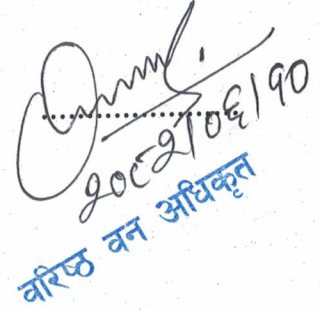 २०८२।०६।१०
वरिष्ठ वन अधिकृत